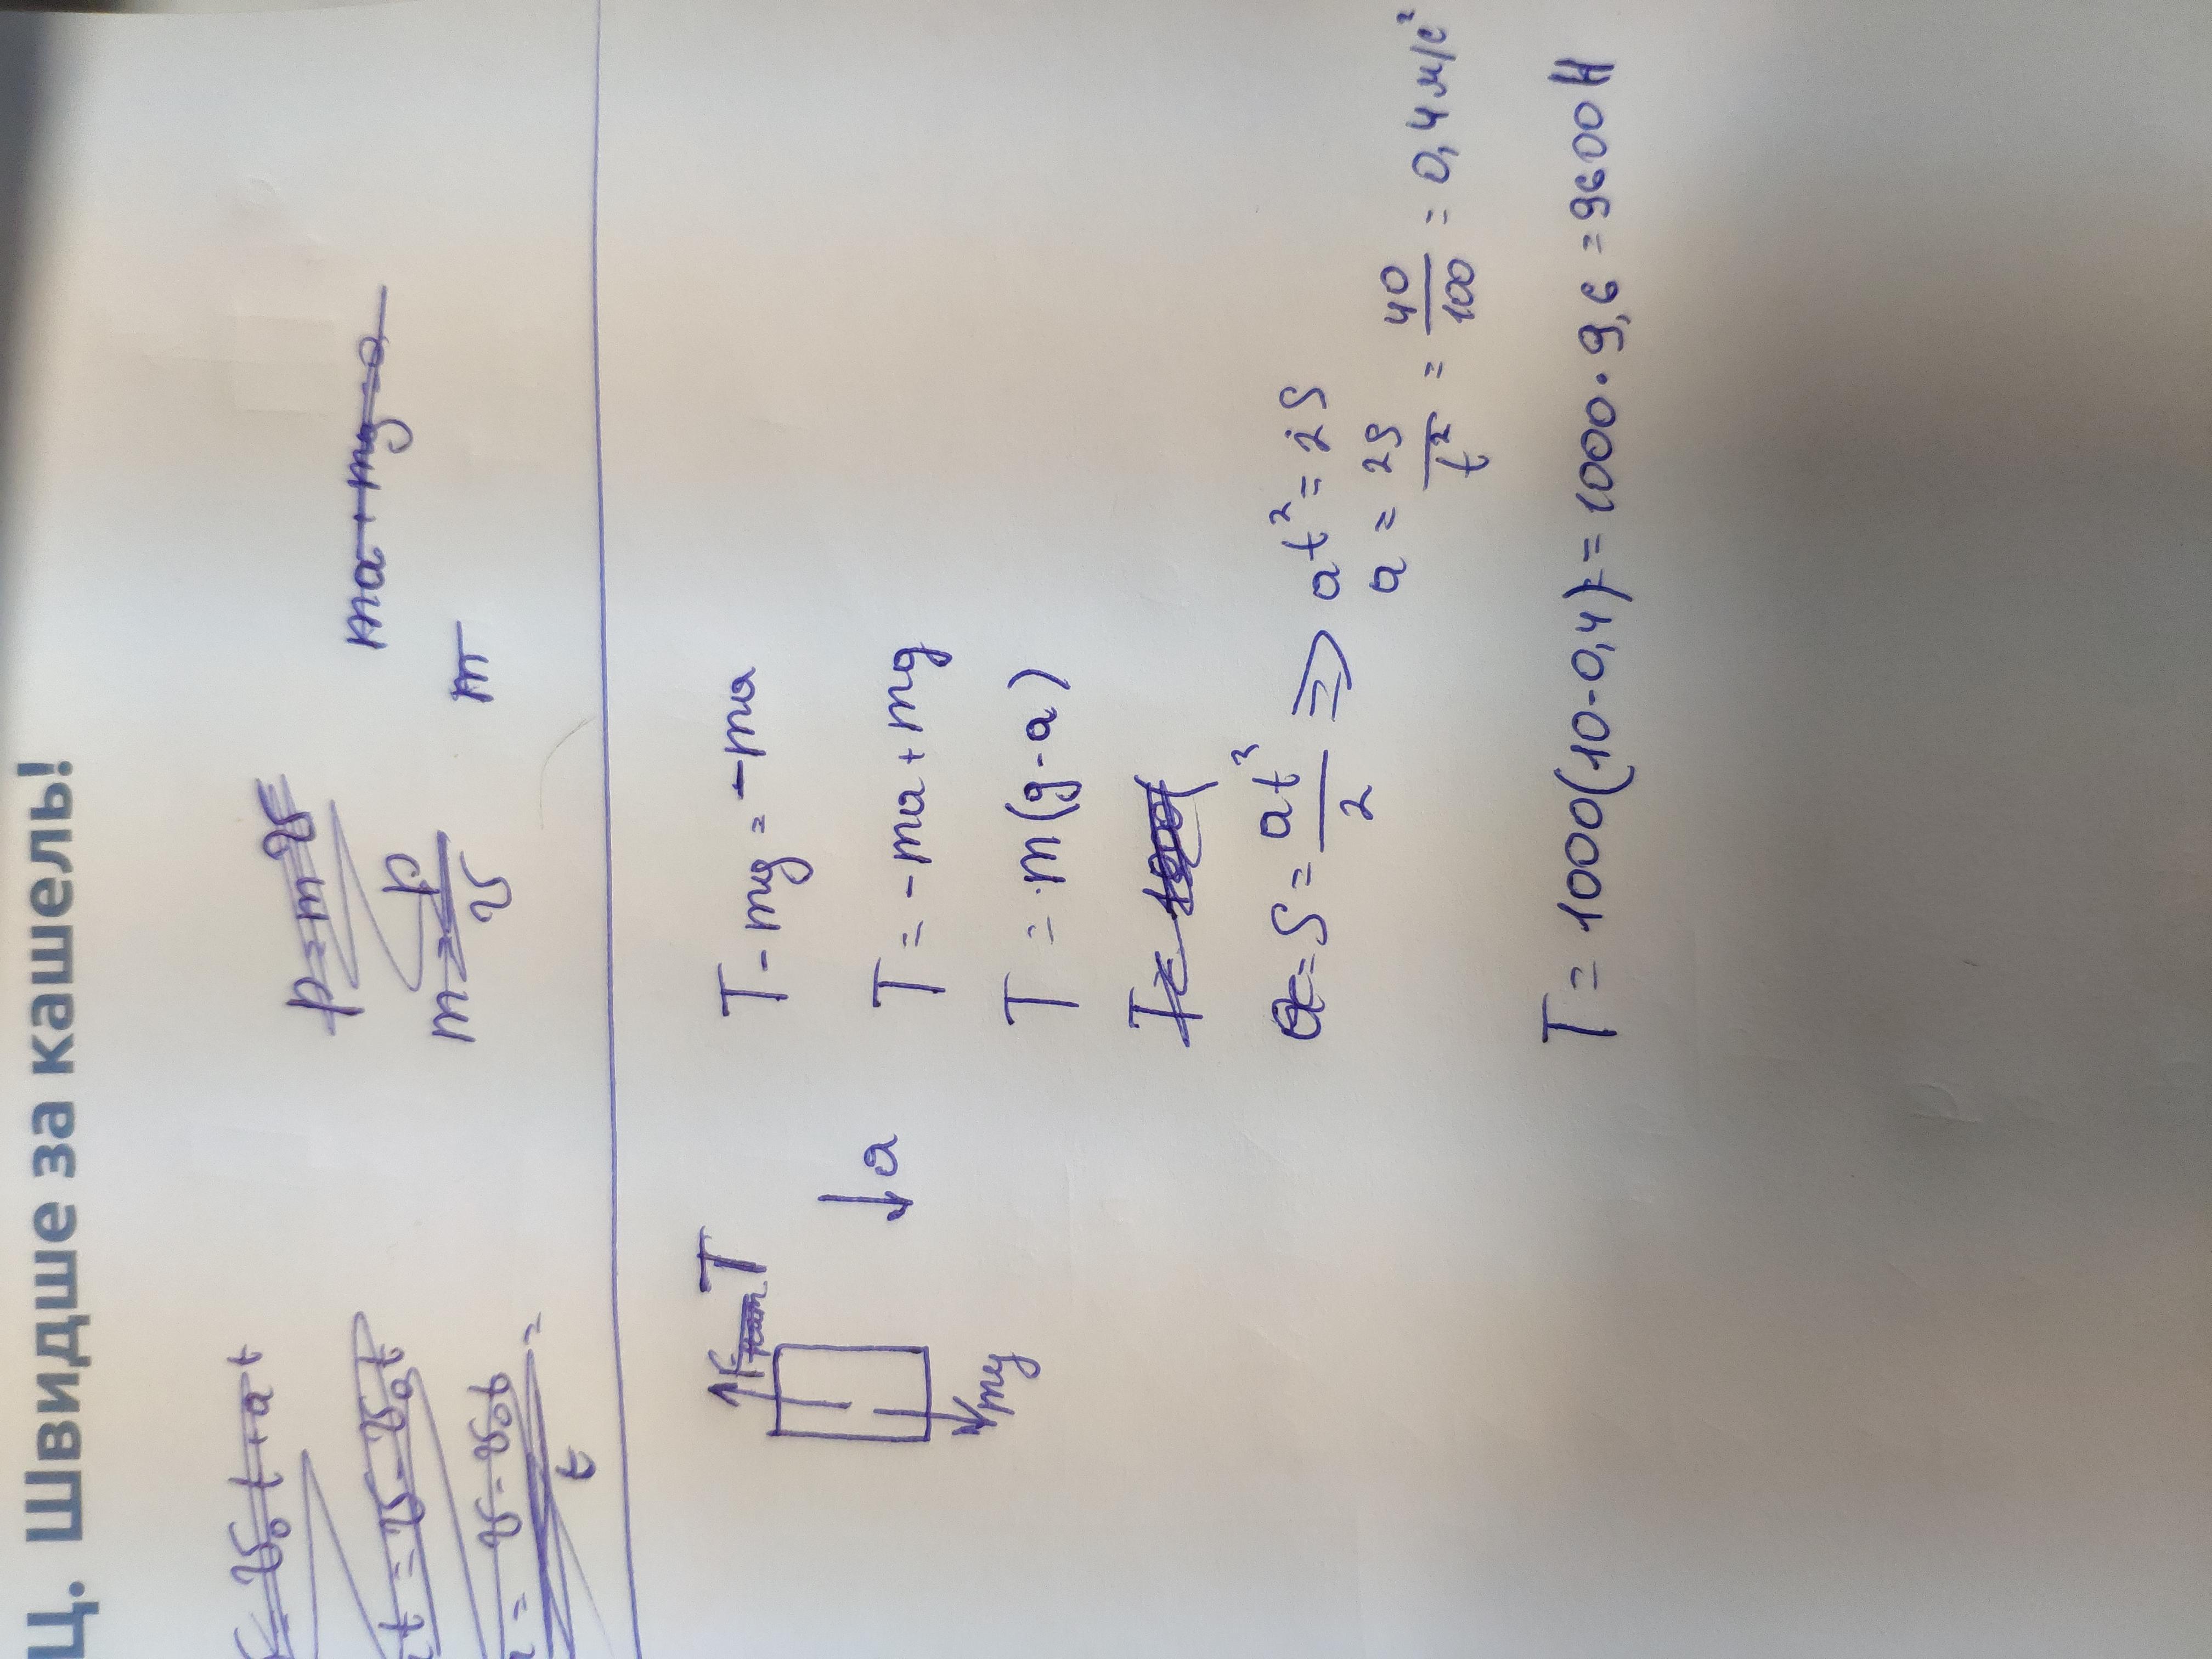 Ц. Швидше за кашель!
ma + mg = 0
m
T
↓a
mg
T - mg = -ma
T = -ma + mg
T = m(g - a)
S = at²/2 => at² = 2S
a = 2S/t² = 40/100 = 0,4 м/с²
T = 1000(10 - 0,4) = 1000 · 9,6 = 9600 Н